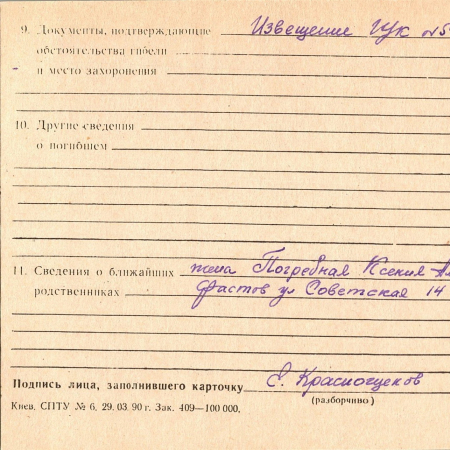 9. Документы, подтверждающие Извещение ГУК №5
обстоятельства гибели
и место захоронения
10. Другие сведения
о погибшем
11. Сведения о ближайших жена Погребная Ксения
родственниках Фастов ул Советская 14
Подпись лица, заполнившего карточку Е. Красношеков
(разборчиво)
Киев, СПТУ № 6, 29. 03. 90 г. Зак. 409—100 000.